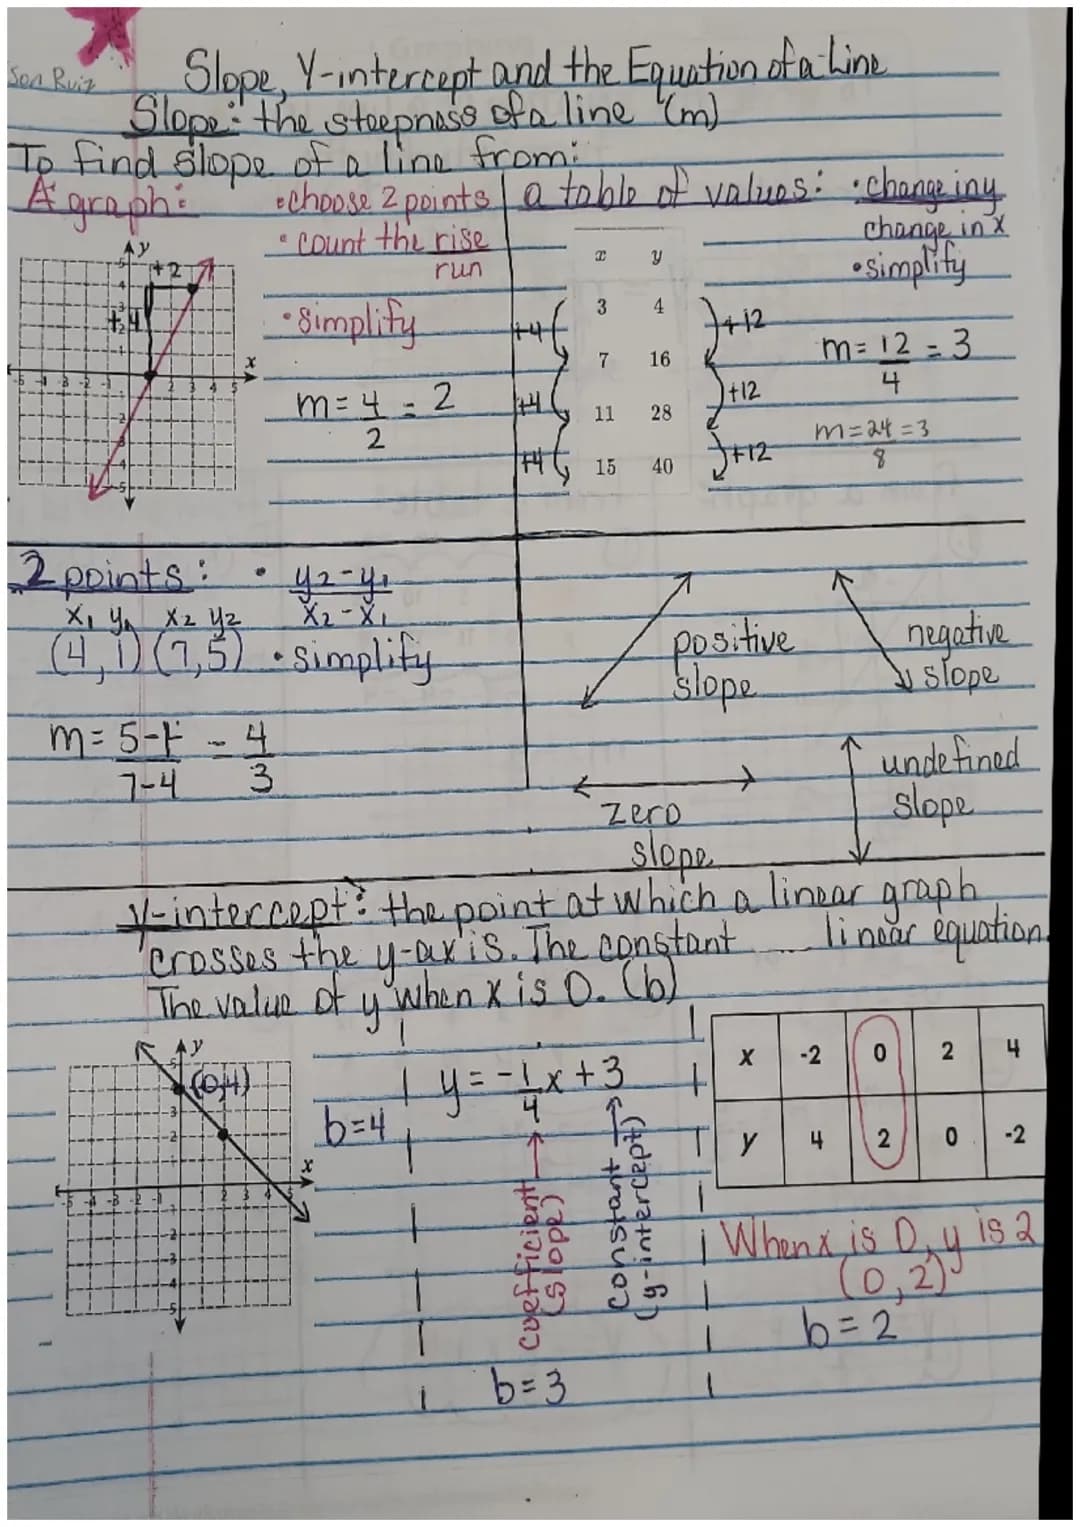 Slope, Y-intercept and the Equation of a Line
Slope: the steepness of a line (m)
To find slope of a line from:
A graph:
• choose 2 points
• count the rise
run
• simplify
y
+2
+4
x
m = 4 = 2
2
a table of values:
• change in y
change in x
• simplify
x y
3 4
7 16
11 28
15 40
+4
+4
+4
+12
+12
+12
m = 12 = 3
4
m = 24 = 3
8
2 points: • y2 - y1
x2 - x1
x1 y1 x2 y2
(4, 1) (7, 5) • simplify
m = 5-1 = 4
7-4 3
positive
slope
negative
slope
zero
slope
undefined
slope
y-intercept: the point at which a linear graph
crosses the y-axis. The constant linear equation.
The value of y when x is 0. (b)
y
(0,4)
x
b=4
y = -1x + 3
4
coefficient
(slope)
constant
(y-intercept)
b=3
x -2 0 2 4
y 4 2 0 -2
When x is 0, y is 2
(0, 2)
b = 2